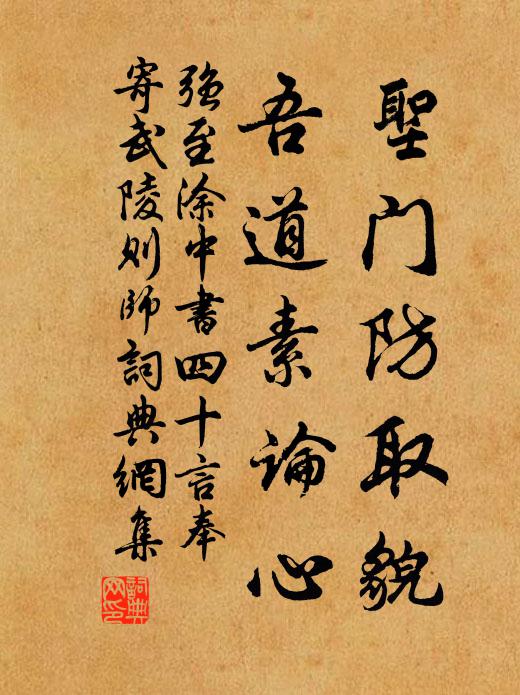 聖门防取貌
吾道素論心
強至涂中書四十言奉
寄武陵则師詞典網集
詞典網印